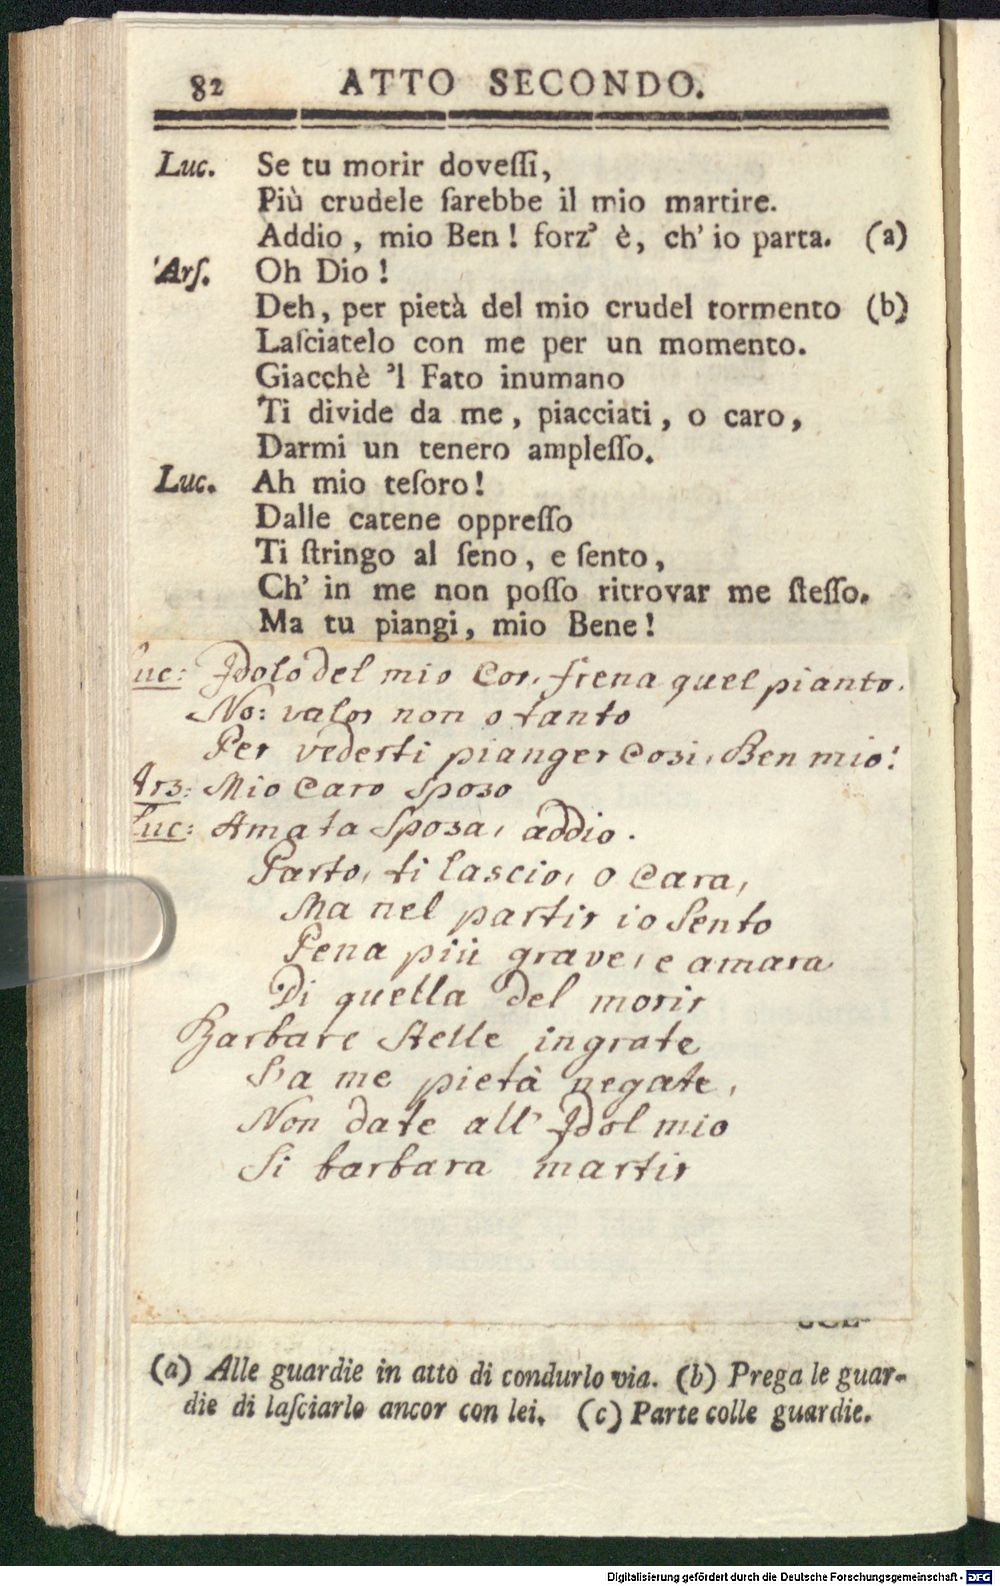 82 ATTO SECONDO.
Luc. Se tu morir doveſſi,
Più crudele ſarebbe il mio martire.
Addio, mio Ben! forz' è, ch' io parta. (a)
Arſ. Oh Dio!
Deh, per pietà del mio crudel tormento (b)
Laſciatelo con me per un momento.
Giacchè 'l Fato inumano
Ti divide da me, piacciati, o caro,
Darmi un tenero ampleſſo.
Luc. Ah mio teſoro!
Dalle catene oppreſſo
Ti ſtringo al ſeno, e ſento,
Ch' in me non poſſo ritrovar me ſteſſo.
Ma tu piangi, mio Bene!
Luc: Idolo del mio Cor, frena quel pianto.
No: valor non o tanto
Per vederti pianger cosi, Ben mio!
Ars: Mio Caro Sposo
Luc: Amata Sposa, addio.
Parto, ti lascio, o Cara,
Ma nel partir io Sento
Pena più grave, e amara
Di quella del morir
Barbare Stelle ingrate
Sa me pietà negate,
Non date all' Idol mio
Si barbara martir
(a) Alle guardie in atto di condurlo via. (b) Prega le guar-
die di laſciarlo ancor con lei. (c) Parte colle guardie.
Digitalisierung gefördert durch die Deutsche Forschungsgemeinschaft - DFG